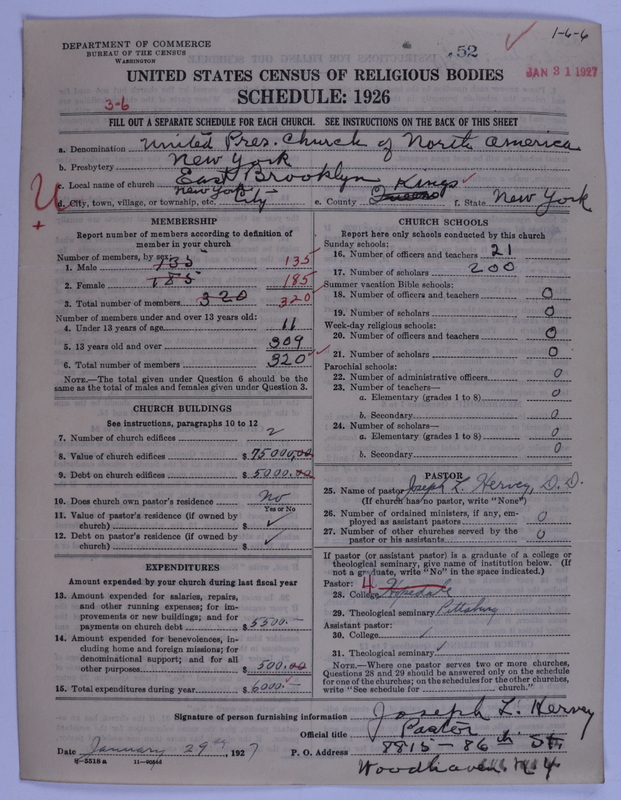 1-6-6
DEPARTMENT OF COMMERCE
BUREAU OF THE CENSUS
WASHINGTON
52
JAN 31 1927
UNITED STATES CENSUS OF RELIGIOUS BODIES
SCHEDULE: 1926
3-6
FILL OUT A SEPARATE SCHEDULE FOR EACH CHURCH. SEE INSTRUCTIONS ON THE BACK OF THIS SHEET
a. Denomination United Pres. Church of North America
b. Presbytery New York
c. Local name of church East Brooklyn
d. City, town, village, or township, etc. New York City e. County Queens Kings f. State New York
MEMBERSHIP
Report number of members according to definition of
member in your church
Number of members, by sex:
1. Male 135 135
2. Female 185 185
3. Total number of members 320 320
Number of members under and over 13 years old:
4. Under 13 years of age 11
5. 13 years old and over 309
6. Total number of members 320
NOTE.—The total given under Question 6 should be the
same as the total of males and females given under Question 3.
CHURCH BUILDINGS
See instructions, paragraphs 10 to 12
7. Number of church edifices 2
8. Value of church edifices $ 75000.00
9. Debt on church edifices $ 5000.00
10. Does church own pastor's residence No
Yes or No
11. Value of pastor's residence (if owned by
church) $
12. Debt on pastor's residence (if owned by
church) $
EXPENDITURES
Amount expended by your church during last fiscal year
13. Amount expended for salaries, repairs,
and other running expenses; for im-
provements or new buildings; and for
payments on church debt $ 5500.—
14. Amount expended for benevolences, in-
cluding home and foreign missions; for
denominational support; and for all
other purposes $ 500.00
15. Total expenditures during year $ 6000.—
CHURCH SCHOOLS
Report here only schools conducted by this church
Sunday schools:
16. Number of officers and teachers 21
17. Number of scholars 200
Summer vacation Bible schools:
18. Number of officers and teachers 0
19. Number of scholars 0
Week-day religious schools:
20. Number of officers and teachers 0
21. Number of scholars 0
Parochial schools:
22. Number of administrative officers 0
23. Number of teachers—
a. Elementary (grades 1 to 8) 0
b. Secondary 0
24. Number of scholars—
a. Elementary (grades 1 to 8) 0
b. Secondary 0
PASTOR
25. Name of pastor Joseph L. Hervey, D.D.
(If church has no pastor, write "None")
26. Number of ordained ministers, if any, em-
ployed as assistant pastors 0
27. Number of other churches served by the
pastor or his assistants 0
If pastor (or assistant pastor) is a graduate of a college or
theological seminary, give name of institution below. (If
not a graduate, write "No" in the space indicated.)
Pastor:
28. College Hopedale
29. Theological seminary Pittsburg
Assistant pastor:
30. College
31. Theological seminary
NOTE.—Where one pastor serves two or more churches,
Questions 28 and 29 should be answered only on the schedule
for one of the churches; on the schedules for the other churches,
write "See schedule for church."
Signature of person furnishing information Joseph L. Hervey
Official title Pastor
Date January 29th, 1927 P. O. Address 8815 — 86th St.
8-5518a
Woodhaven N.Y